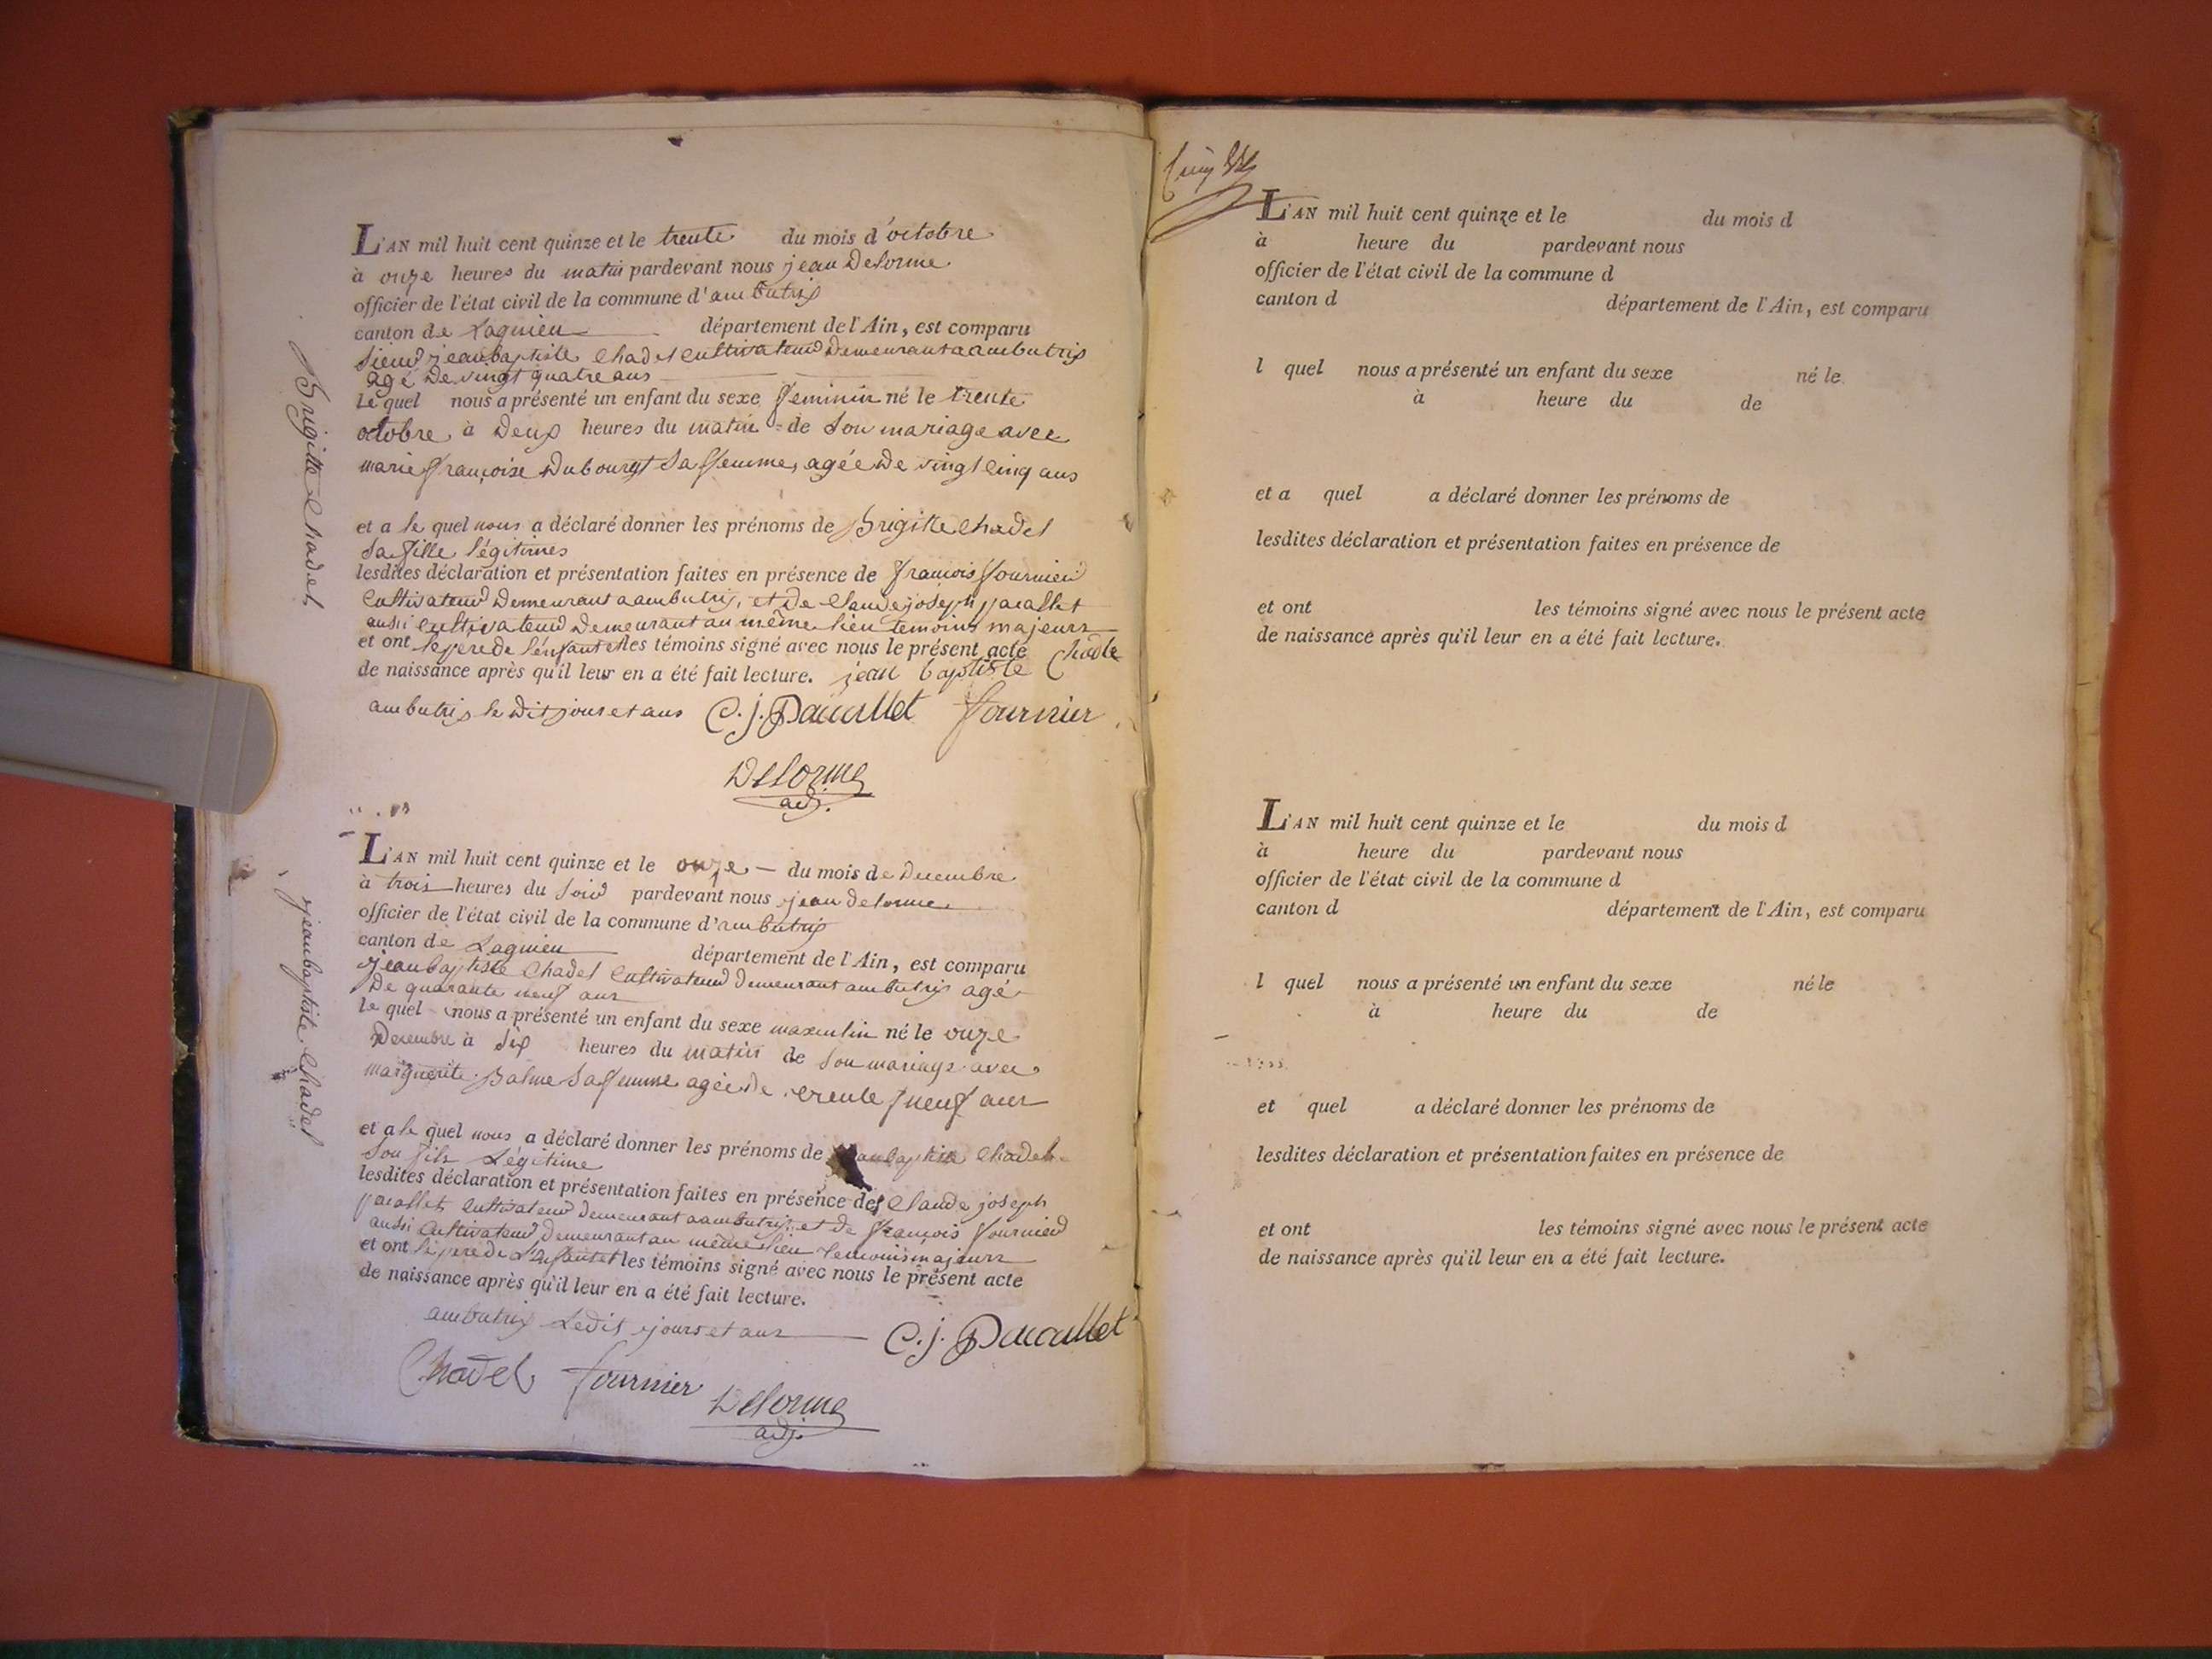 L'AN mil huit cent quinze et le trente du mois d'octobre
à onze heures du matin pardevant nous jean Delorme
officier de l'état civil de la commune d'ambutrix
canton de Lagnieu département de l'Ain, est comparu
Sieur jean baptiste Chadel cultivateur demeurant a ambutrix
agé de vingt quatre ans
Le quel nous a présenté un enfant du sexe féminin né le trente
octobre à deux heures du matin de son mariage avec
marie françoise Dubourgt sa femme, agée de vingt cinq ans
et a le quel nous a déclaré donner les prénoms de Brigitte Chadel
sa fille légitimes
lesdites déclaration et présentation faites en présence de françois fournier
cultivateur demeurant a ambutrix, et de Claude joseph pacallet
aussi cultivateur demeurant au même lieu temoins majeurs
et ont le pere de l'enfant et les témoins signé avec nous le présent acte
de naissance après qu'il leur en a été fait lecture. jean baptiste Chadle
ambutrix le dit jour et ans C. j. Pacallet fournier
Delorme
adj.
Brigitte Chadel
L'AN mil huit cent quinze et le onze du mois de Decembre
à trois heures du soir pardevant nous jean delorme
officier de l'état civil de la commune d'ambutrix
canton de Lagnieu département de l'Ain, est comparu
jean baptiste Chadel cultivateur demeurant ambutrix agé
De quarante neuf ans
le quel nous a présenté un enfant du sexe masculin né le onze
Decembre à six heures du matin de son mariage avec
marguerite Balme sa femme agée de trente neuf ans
et a le quel nous a déclaré donner les prénoms de jean baptiste Chadel
son fils Légitime
lesdites déclaration et présentation faites en présence de Claude joseph
pacallet cultivateur demeurant a ambutrix et de françois fournier
aussi cultivateur demeurant au même lieu temoins majeurs
et ont le pere de L'enfant et les témoins signé avec nous le présent acte
de naissance après qu'il leur en a été fait lecture.
ambutrix Ledit jours et ans C. j. Pacallet
Chadel fournier Delorme
adj.
jean baptiste Chadel
L'AN mil huit cent quinze et le du mois d
à heure du pardevant nous
officier de l'état civil de la commune d
canton d département de l'Ain, est comparu
l quel nous a présenté un enfant du sexe né le
à heure du de
et a quel a déclaré donner les prénoms de
lesdites déclaration et présentation faites en présence de
et ont les témoins signé avec nous le présent acte
de naissance après qu'il leur en a été fait lecture.
L'AN mil huit cent quinze et le du mois d
à heure du pardevant nous
officier de l'état civil de la commune d
canton d département de l'Ain, est comparu
l quel nous a présenté un enfant du sexe né le
à heure du de
et quel a déclaré donner les prénoms de
lesdites déclaration et présentation faites en présence de
et ont les témoins signé avec nous le présent acte
de naissance après qu'il leur en a été fait lecture.